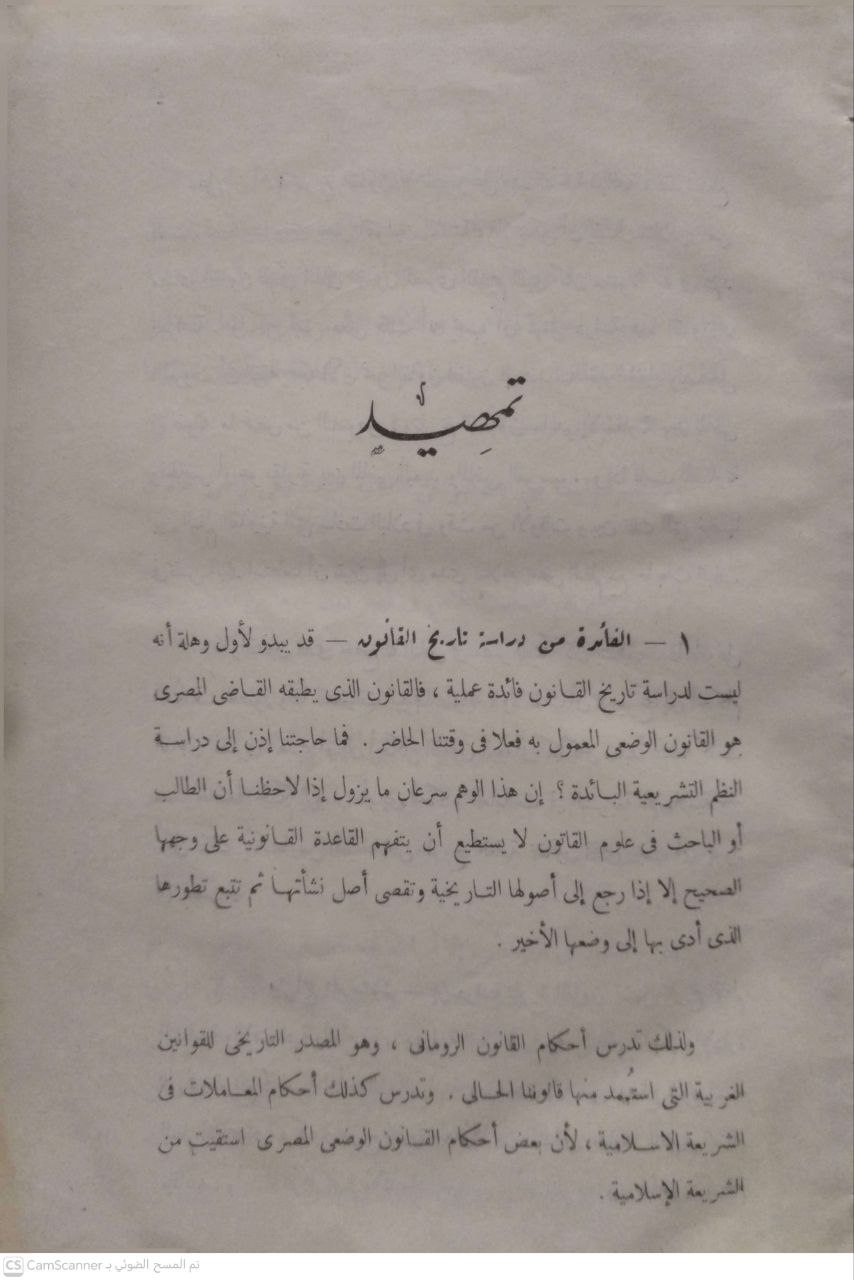 تمهيد
١ — الفائدة من دراسة تاريخ القانون — قد يبدو لأول وهلة أنه
ليست لدراسة تاريخ القـانون فائدة عملية ، فالقانون الذى يطبقه القـاضى المصرى
هو القانون الوضعى المعمول به فعلا فى وقتنا الحاضر . فما حاجتنا إذن إلى دراسـة
النظم التشريعية البـائدة ؟ إن هذا الوهم سرعان ما يزول إذا لاحظنـا أن الطالب
أو الباحث فى علوم القاتون لا يستطيع أن يتفهم القاعدة القـانونية على وجهها
الصحيح إلا إذا رجع إلى أصولها التـاريخية وتقصى أصل نشأتهـا ثم تتبع تطورها
الذى أدى بها إلى وضعها الأخير .
ولذلك تدرس أحكام القانون الرومانى ، وهو المصدر التاريخى للقوانين
الغربية التى استُمد منها قانوننا الحـالى . وتدرس كذلك أحكام المعـاملات فى
الشريعة الاسـلامية ، لأن بعض أحكام القـانون الوضعى المصرى استقيت من
الشريعة الإسلامية .
CS CamScanner تم المسح الضوئي بـ